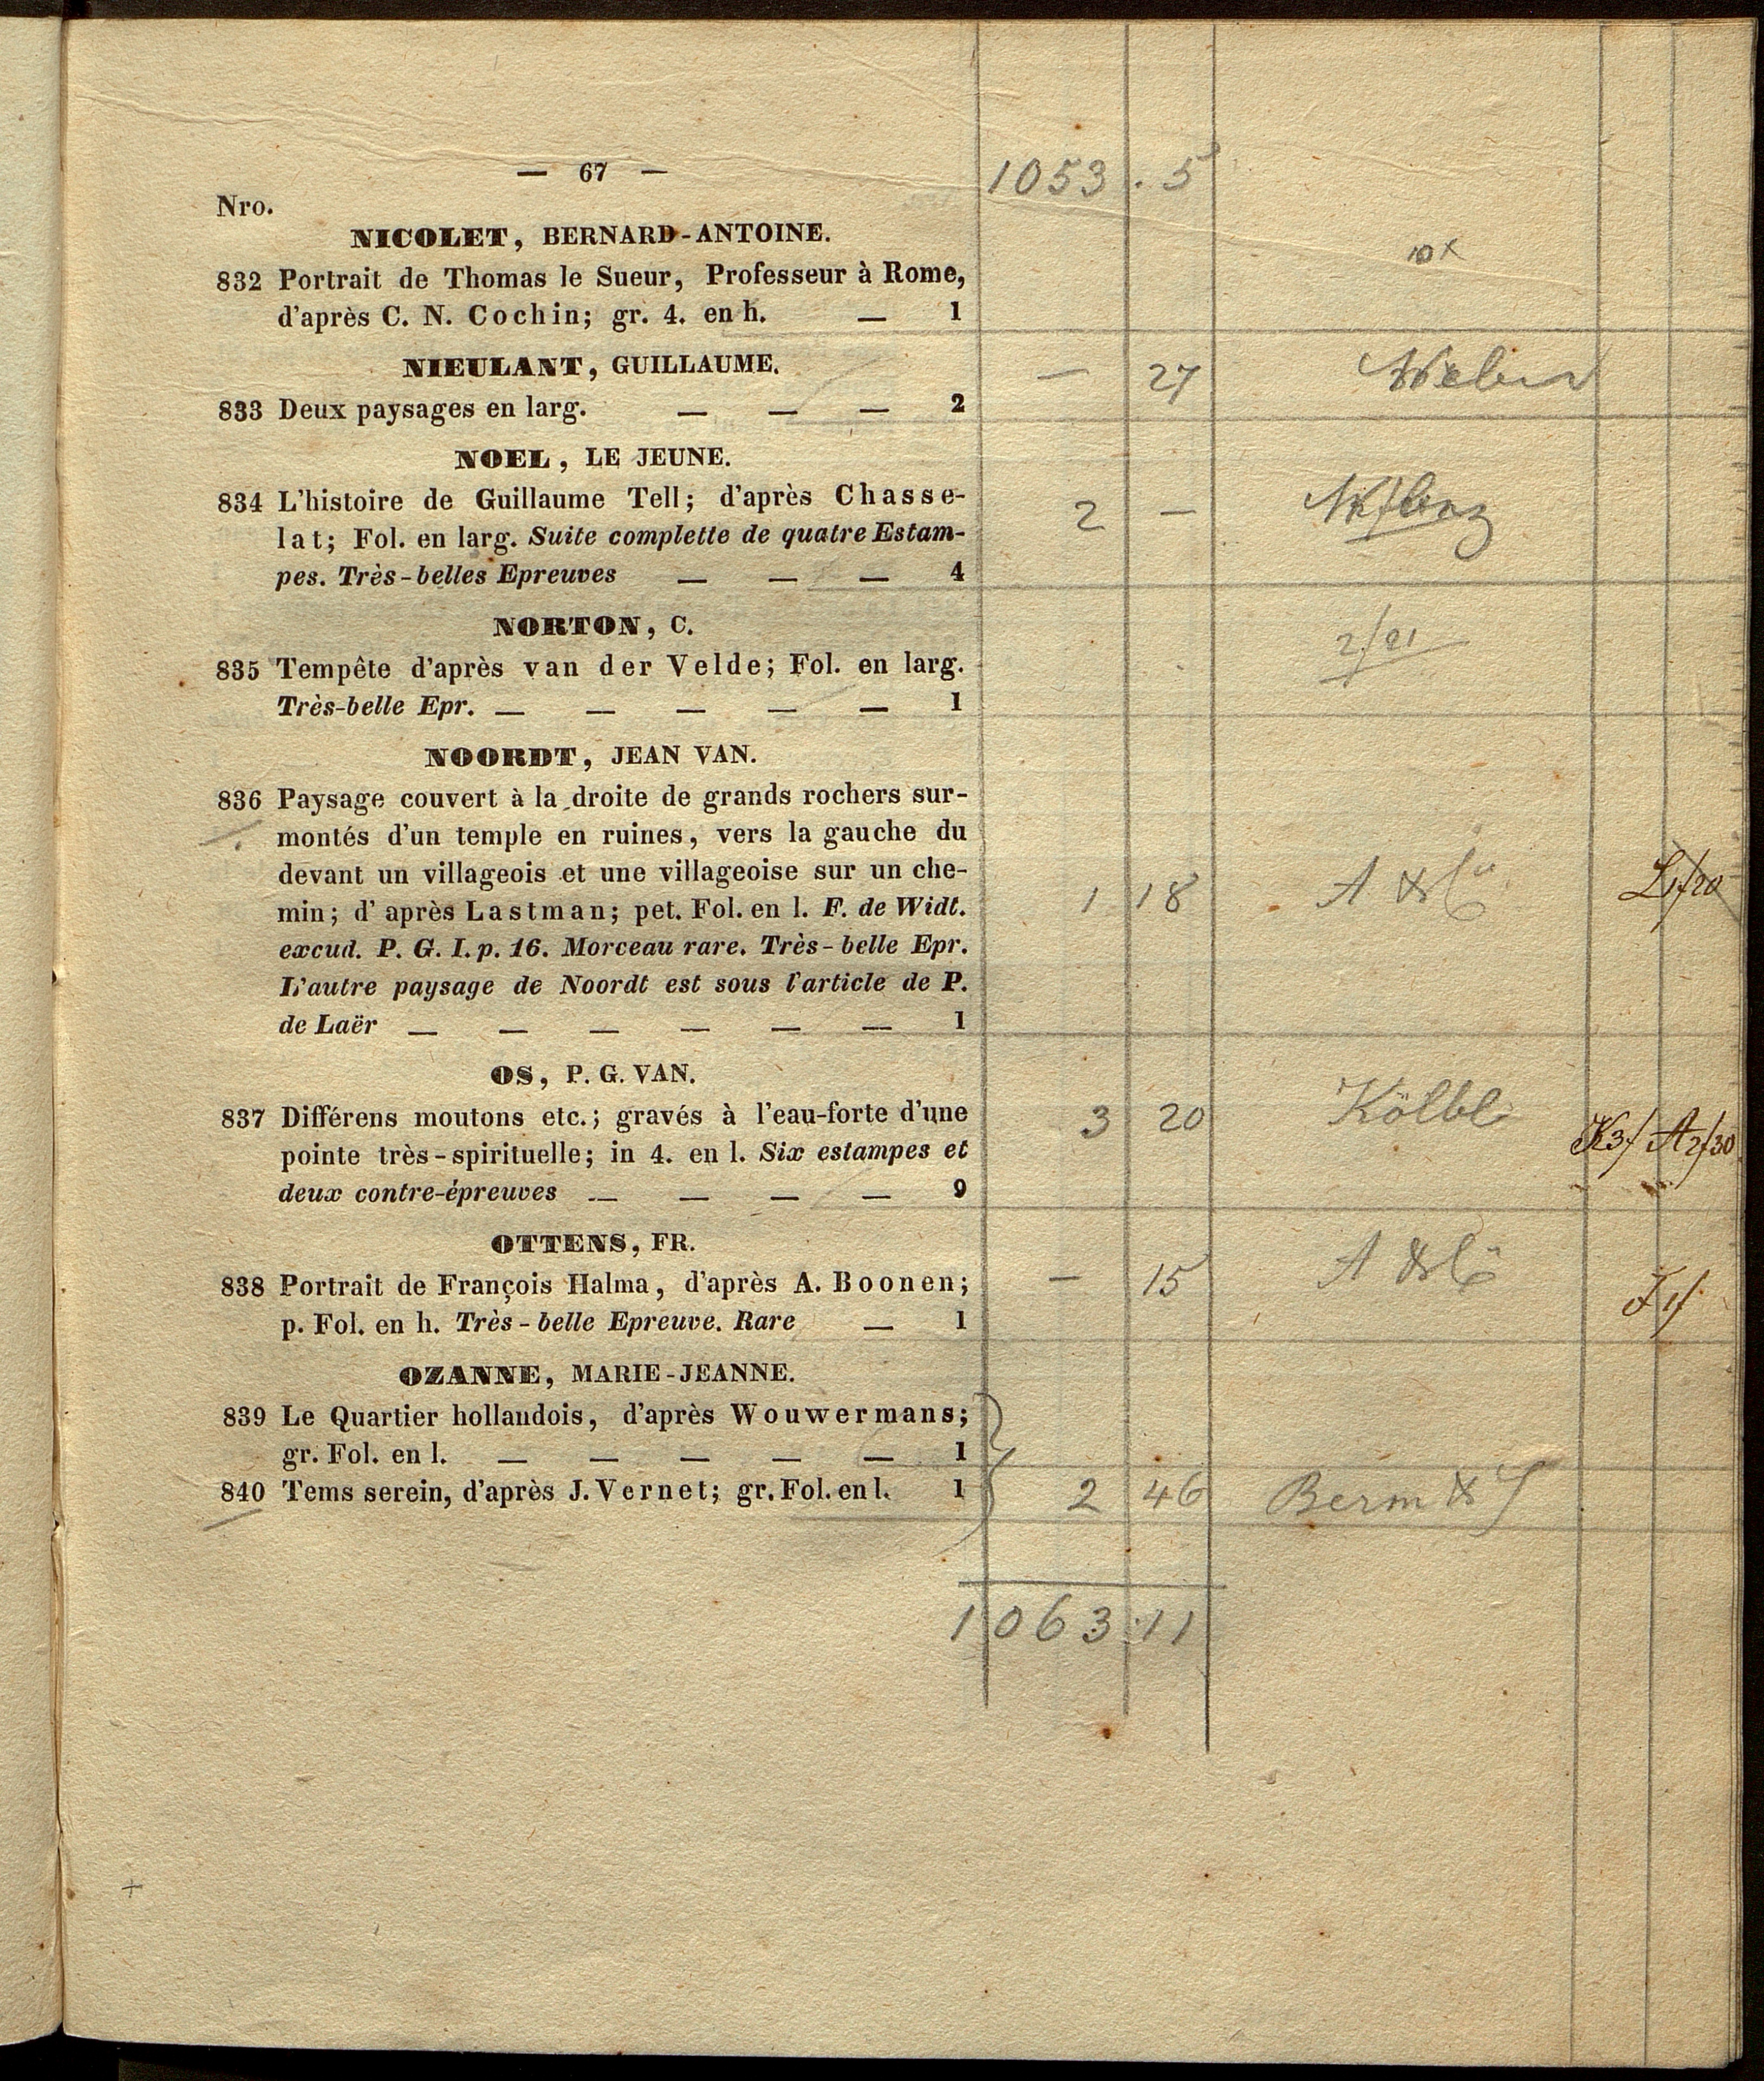 — 67 —
1053 . 5
Nro.
NICOLET, BERNARD-ANTOINE.
832 Portrait de Thomas le Sueur, Professeur à Rome,
d'après C. N. Cochin; gr. 4. en h. — 1
NIEULANT, GUILLAUME.
— 27
833 Deux paysages en larg. — — — 2
NOEL, LE JEUNE.
834 L'histoire de Guillaume Tell; d'après Chasse-
2 —
lat; Fol. en larg. Suite complette de quatre Estam-
pes. Très-belles Epreuves — — — 4
NORTON, C.
2/21
835 Tempête d'après van der Velde; Fol. en larg.
Très-belle Epr. — — — — — 1
NOORDT, JEAN VAN.
836 Paysage couvert à la droite de grands rochers sur-
montés d'un temple en ruines, vers la gauche du
devant un villageois et une villageoise sur un che-
1 18 A & Co L1/20
min; d'après Lastman; pet. Fol. en l. F. de Widt.
excud. P. G. I. p. 16. Morceau rare. Très-belle Epr.
L'autre paysage de Noordt est sous l'article de P.
de Laër — — — — — — 1
OS, P. G. VAN.
837 Différens moutons etc.; gravés à l'eau-forte d'une
3 20 Kölbl K3/ A2/30
pointe très-spirituelle; in 4. en l. Six estampes et
deux contre-épreuves — — — — 9
OTTENS, FR.
838 Portrait de François Halma, d'après A. Boonen;
— 15 A & Co
p. Fol. en h. Très-belle Epreuve. Rare — 1
OZANNE, MARIE-JEANNE.
839 Le Quartier hollandois, d'après Wouwermans;
gr. Fol. en l. — — — — — 1
840 Tems serein, d'après J. Vernet; gr. Fol. en l. 1
2 46 Berm &
1063.11